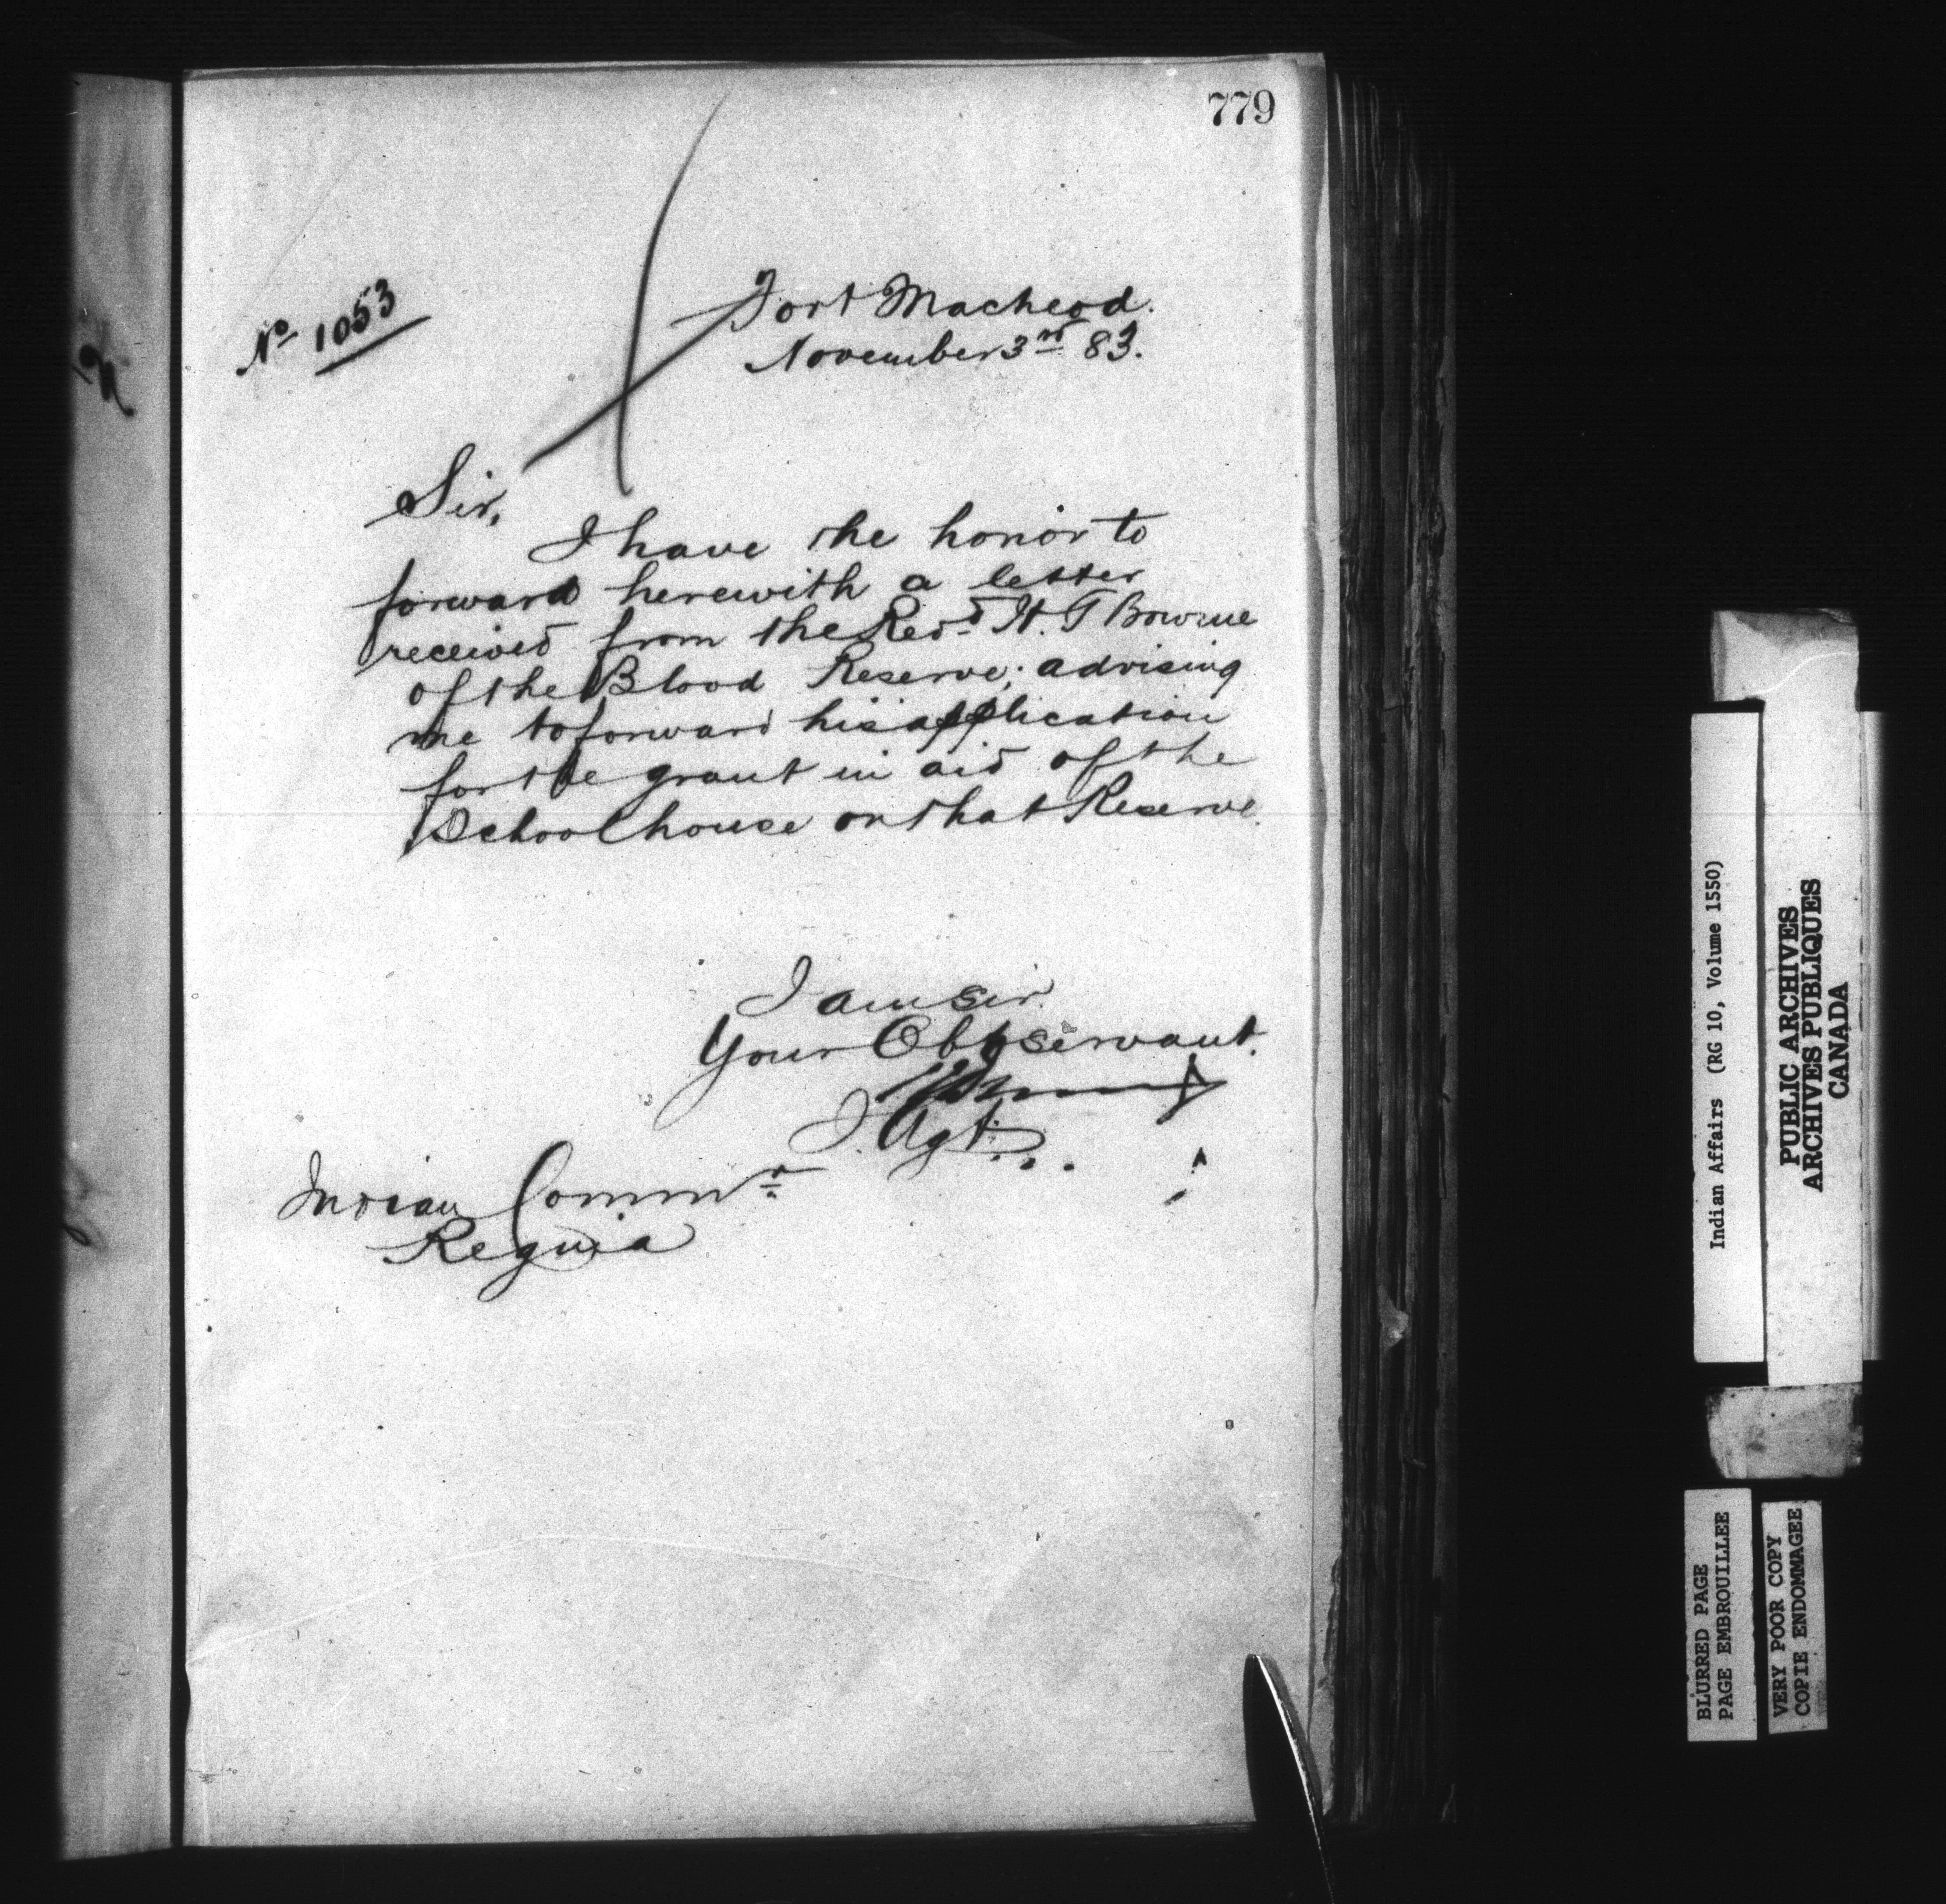 779
No 1053
Fort Macleod.
November 3rd 83.
Sir,
I have the honor to
forward herewith a letter
received from the Revd H. T Bourne
of the Blood Reserve; advising
me to forward his application
for the grant in aid of the
School house on that Reserve.
I am sir
Your Obt servant.
I. Agt.
Indian Commr
Regina
Indian Affairs (RG 10, Volume 1550)
PUBLIC ARCHIVES
ARCHIVES PUBLIQUES
CANADA
BLURRED PAGE
PAGE EMBROUILLEE
VERY POOR COPY
COPIE ENDOMMAGEE